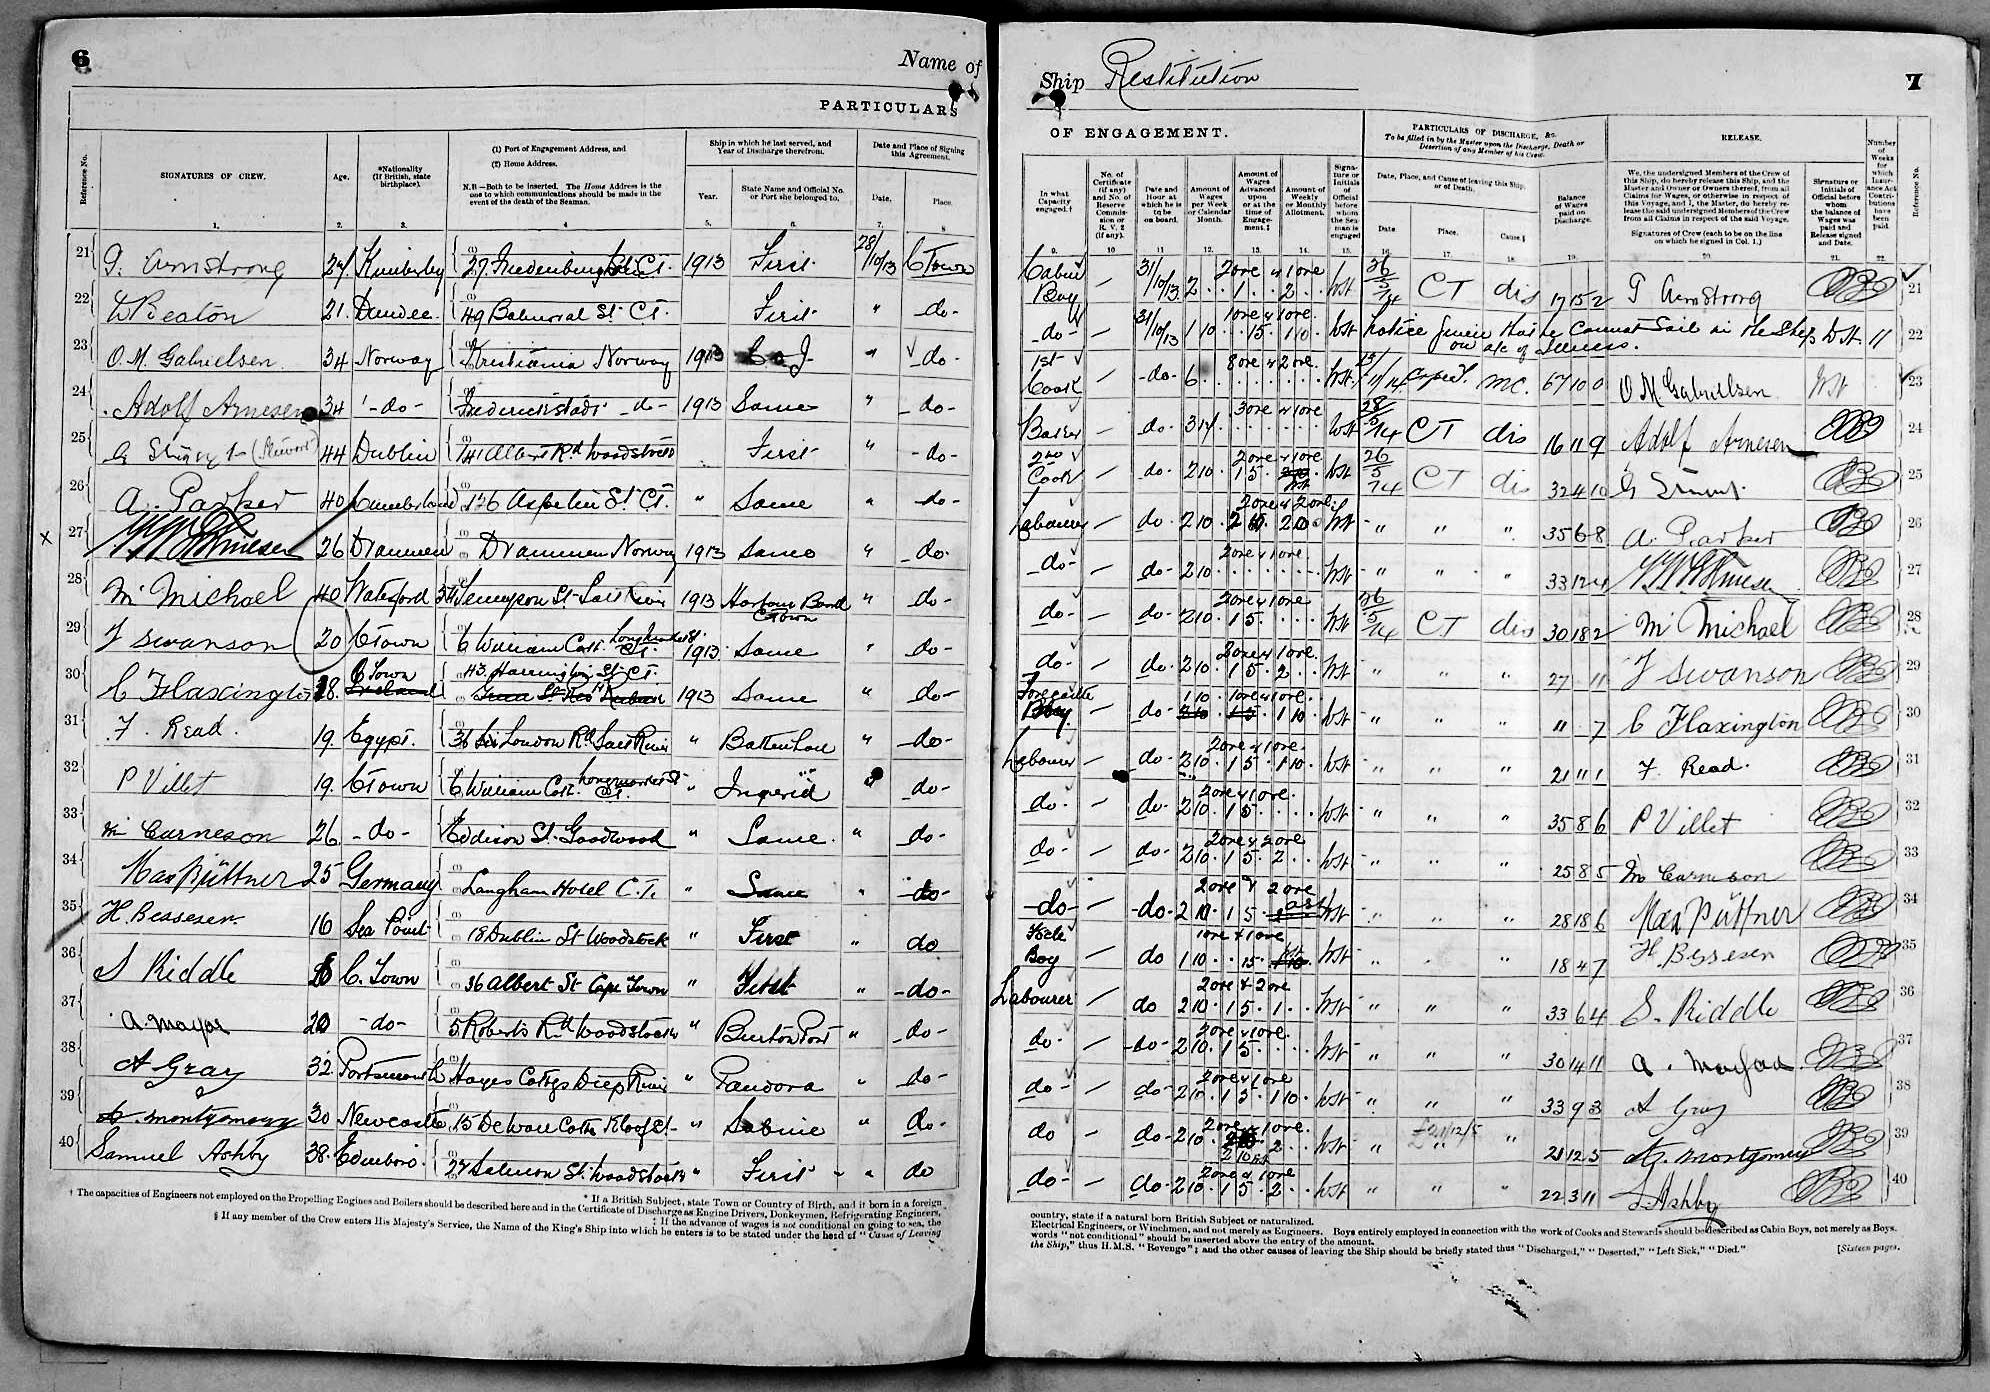 6
Name of
PARTICULARS
Reference No.
SIGNATURES OF CREW.
Age.
*Nationality
(If British, state
birthplace).
(1) Port of Engagement Address, and
(2) Home Address.
N.B.—Both to be inserted. The Home Address is the
one to which communications should be made in the
event of the death of the Seaman.
Ship in which he last served, and
Year of Discharge therefrom.
Year.
State Name and Official No.
or Port she belonged to.
Date and Place of Signing
this Agreement.
Date.
Place.
1. 2. 3. 4 5. 6. 7. 8
21 G. Armstrong 24 Kimberley 1913 First 28/10/13 CTown
22 Beaton 21. Dundee 49 Balmoral St. C.T. First " -do-
23 O. M. Gabrielsen 34 Norway Kristiania Norway 1913 " do-
24 Adolf Arnesen 34 -do- Frederickstadt -do- 1913 Same " -do-
25 44 Dublin 141 Albert Rd Woodstock First " -do-
26 A. Parker 40 Cumberland St. C.T. " Same " -do-
27 26 Drammen Drammen Norway 1913 Same " do-
28 M Michael 40 Waterford Tennyson St Salt River 1913 Harbour Board CTown " -do-
29 F Swanson 20 CTown 6 William Cott. Longmarket St. C.T. 1913 Same " do-
30 C Flaxington 18. C Town 43 Harrington St. C.T. 1913 Same " do-
31 F. Read. 19. Egypt. 36 London Rd Salt River " " -do-
32 P Villet 19. CTown 6 William Cott. Longmarket St C.T. " " -do-
33 M Carneson 26 -do- Eddison St. Goodwood " Same " do-
34 Max Püttner 25 Germany Langham Hotel C.T. " Same " -do-
35 H. Bessesen 16 Sea Point 18 Dublin St Woodstock " First " do
36 S Riddle C. Town 36 Albert St Cape Town " First " -do-
37 A. 20 -do- 5 Roberts Rd Woodstock " " -do-
38 A Gray 32 Portsmouth Hayes Cottgs Diep River " Pandora " do-
39 Montgomery 30 Newcastle 15 De Waal Cotts Kloof St- " Sabine " do.
40 Samuel Ashby 38. Edinboro. 27 Salmon St. Woodstock " First " do
† The capacities of Engineers not employed on the Propelling Engines and Boilers should be described here and in the Certificate of Discharge as Engine Drivers, Donkeymen, Refrigerating Engineers,
* If a British Subject, state Town or Country of Birth, and if born in a foreign
‡ If the advance of wages is not conditional on going to sea, the
§ If any member of the Crew enters His Majesty's Service, the Name of the King's Ship into which he enters is to be stated under the head of "Cause of Leaving
Ship Restitution
7
OF ENGAGEMENT.
PARTICULARS OF DISCHARGE, &c.
To be filled in by the Master upon the Discharge, Death or
Desertion of any Member of his Crew.
RELEASE.
In what
Capacity
engaged.†
No. of
Certificate
(if any)
and No. of
Reserve
Commis-
sion or
R. V. 2
(if any).
Date and
Hour at
which he is
to be
on board.
Amount of
Wages
per Week
or Calendar
Month.
Amount of
Wages
Advanced
upon
or at the
time of
Engage-
ment.‡
Amount of
Weekly
or Monthly
Allotment.
Signa-
ture or
Initials
of
Official
before
whom
the Sea-
man is
engaged
Date, Place, and Cause of leaving this Ship,
or of Death.
Date.
Place.
Cause.§
Balance
of Wages
paid on
Discharge.
We, the undersigned Members of the Crew of
this Ship, do hereby release this Ship, and the
Master and Owner or Owners thereof, from all
Claims for Wages, or otherwise in respect of
this Voyage, and I, the Master, do hereby re-
lease the said undersigned Members of the Crew
from all Claims in respect of the said Voyage.
Signatures of Crew (each to be on the line
on which he signed in Col. 1.)
Signature or
Initials of
Official before
whom
the balance of
Wages was
paid and
Release signed
and Date.
Number
of
Weeks
for
which
Insur-
ance Act
Contri-
butions
have
been
paid.
Reference No.
9. 10 11 12. 13. 14. 15. 16 17. 18. 19. 20. 21. 22.
Cabin Boy — 31/10/13 2 . . 1 . . 2 . . 26/5/14 CT dis 17 15 2 G Armstrong 21
-do- — 31/10/13 1 10 . 15 . 1 10 . Notice given that he cannot sail in the Ship on a/c of illness. 22
1st Cook — -do- 6 67 10 0 O M Gabrielsen 23
Baker — do- 28/5/14 CT dis 16 11 9 Adolf Arnesen 24
2nd Cook — do- 2 10 . 1 5 . 26/5/14 CT dis 32 4 10 25
Labourer — do- 2 10 . " " " 35 6 8 A. Parker 26
-do- — do- 2 10 . " " " 33 12 4 27
do- — do- 2 10 . 1 5 . 26/5/14 CT dis 30 18 2 M Michael 28
do- — do- 2 10 . 1 5 . 2 . . " " " 27 - 11 F Swanson 29
Forecastle Boy. — do- 1 10 . 1 10 . " " " 11 - 7 C Flaxington 30
Labourer — do- 2 10 . 1 5 . 1 10 . " " " 21 11 1 F. Read. 31
do- — do- 2 10 . 1 5 . " " " 35 8 6 P Villet 32
do- — do- 2 10 . 1 5 . 2 . . " " " 25 8 5 M Carneson 33
-do- — -do- 2 10 . 1 5 . " " " 28 18 6 Max Püttner 34
Boy — do 1 10 . . 15 . " " 18 4 7 H. Bessesen 35
Labourer — do 2 10 . 1 5 . 1 . . " " " 33 6 4 S. Riddle 36
do- — -do- 2 10 . 1 5 . " " " 30 14 11 A. 37
do- — do- 2 10 . 1 5 . 1 10 . " " " 33 9 3 A Gray 38
do — do- 2 10 . 2 . . " " " 21 12 5 Montgomery 39
do- — do- 2 10 . 1 5 . 2 . . " " " 22 3 11 S. Ashby 40
country, state if a natural born British Subject or naturalized.
Electrical Engineers, or Winchmen, and not merely as Engineers. Boys entirely employed in connection with the work of Cooks and Stewards should be described as Cabin Boys, not merely as Boys.
words "not conditional" should be inserted above the entry of the amount.
the Ship," thus H.M.S. "Revenge"; and the other causes of leaving the Ship should be briefly stated thus "Discharged," "Deserted," "Left Sick," "Died."
[Sixteen pages.